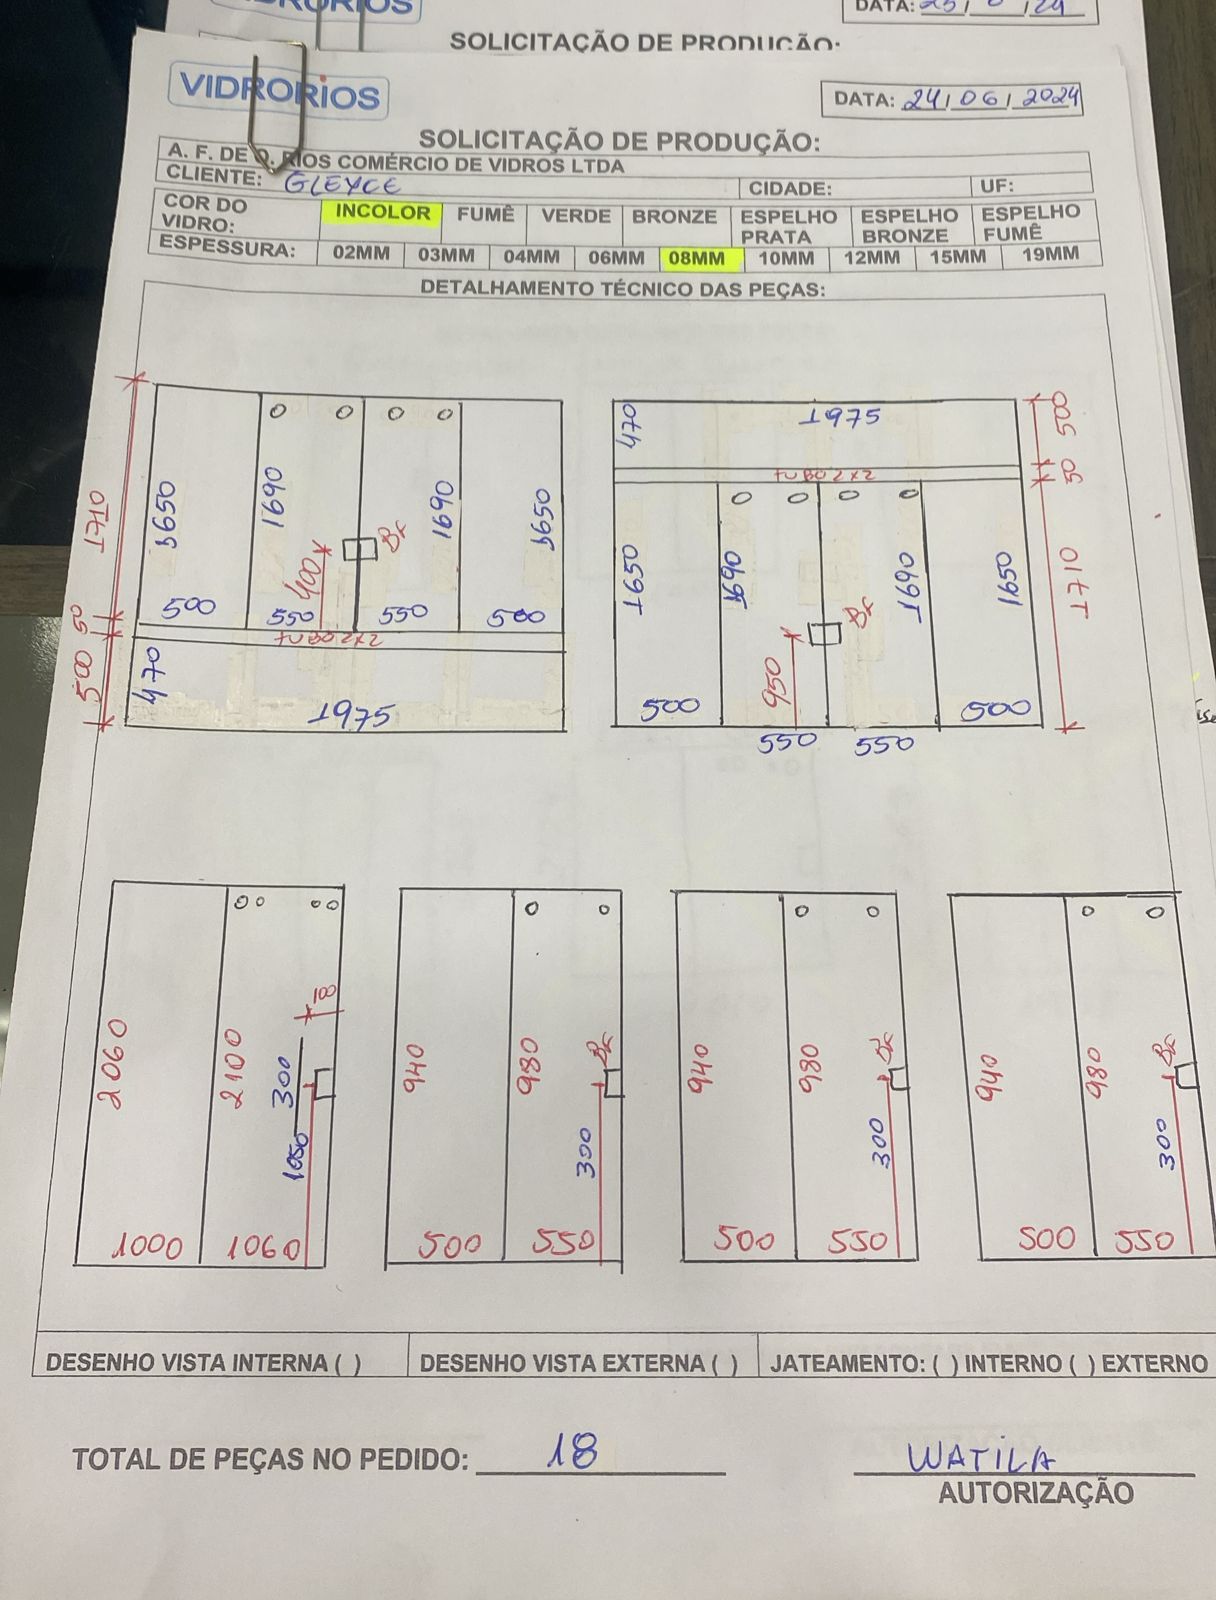 DATA: 25/ /24
SOLICITAÇÃO DE PRODUÇÃO:
VIDRORIOS
DATA: 24/06/2024
SOLICITAÇÃO DE PRODUÇÃO:
A. F. DE Q. RIOS COMÉRCIO DE VIDROS LTDA
CLIENTE: GLEYCE CIDADE: UF:
COR DO VIDRO: INCOLOR FUMÊ VERDE BRONZE ESPELHO PRATA ESPELHO BRONZE ESPELHO FUMÊ
ESPESSURA: 02MM 03MM 04MM 06MM 08MM 10MM 12MM 15MM 19MM
DETALHAMENTO TÉCNICO DAS PEÇAS:
1710 50 500
1650 1690 1690 1650
400 Bc
500 550 550 500
TUBO 2x2
470 1975
470 1975
TUBO 2x2
500 50 1710
1650 1690 1690 1650
950 Bc
500 550 550 500
2060 2100 300 1050 100
1000 1060
940 980 Bc 300
500 550
940 980 Bc 300
500 550
940 980 Bc 300
500 550
DESENHO VISTA INTERNA ( ) DESENHO VISTA EXTERNA ( ) JATEAMENTO: ( ) INTERNO ( ) EXTERNO
TOTAL DE PEÇAS NO PEDIDO: 18
WATILA
AUTORIZAÇÃO